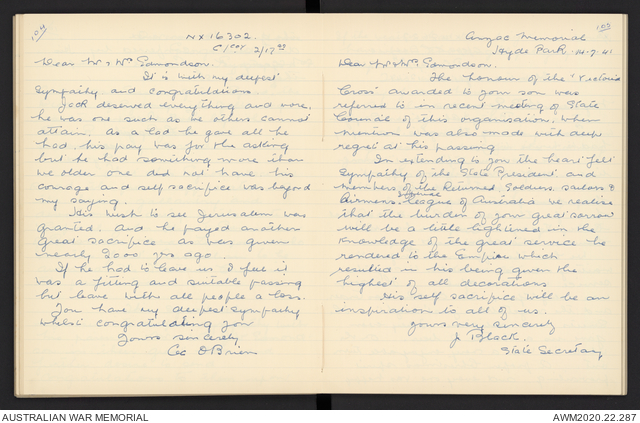 104
NX16302.
C/Coy 2/17th
Dear Mr & Mrs Edmondson.
It is with my deepest
sympathy and congratulations.
Jack deserved everything and more,
he was one such as we others cannot
attain. As a lad he gave all he
had, his pay was for the asking
but he had something more than
we older one did not have his
courage and self sacrifice was beyond
my saying.
His wish to see Jerusalem was
granted. And he payed another
great sacrifice as was given
nearly 2000 yrs ago.
If he had to leave us I feel it
was a fitting and suitable passing
but leave with all people a loss.
You have my deepest sympathy
whilst congratulating you
Yours sincerely
Cec O'Brien
105
Anzac Memorial
Hyde Park. 14.7.41
Dear Mr & Mrs Edmondson.
The honour of the "Victoria
Cross" awarded to your son was
referred to in recent meeting of State
Council of this organisation, when
mention was also made with deep
regret at his passing
In extending to you the heart felt
sympathy of the State President and
members of the Returned Soldiers, sailors &
Airmens League of Australia we realise
that the burden of your great sorrow
will be a little lightened in the
knowledge of the great service he
rendered to the Empire which
resulted in his being given the
highest of all decorations
His self sacrifice will be an
inspiration to all of us.
yours very sincerely
J Black.
State Secretary
AUSTRALIAN WAR MEMORIAL
AWM2020.22.287